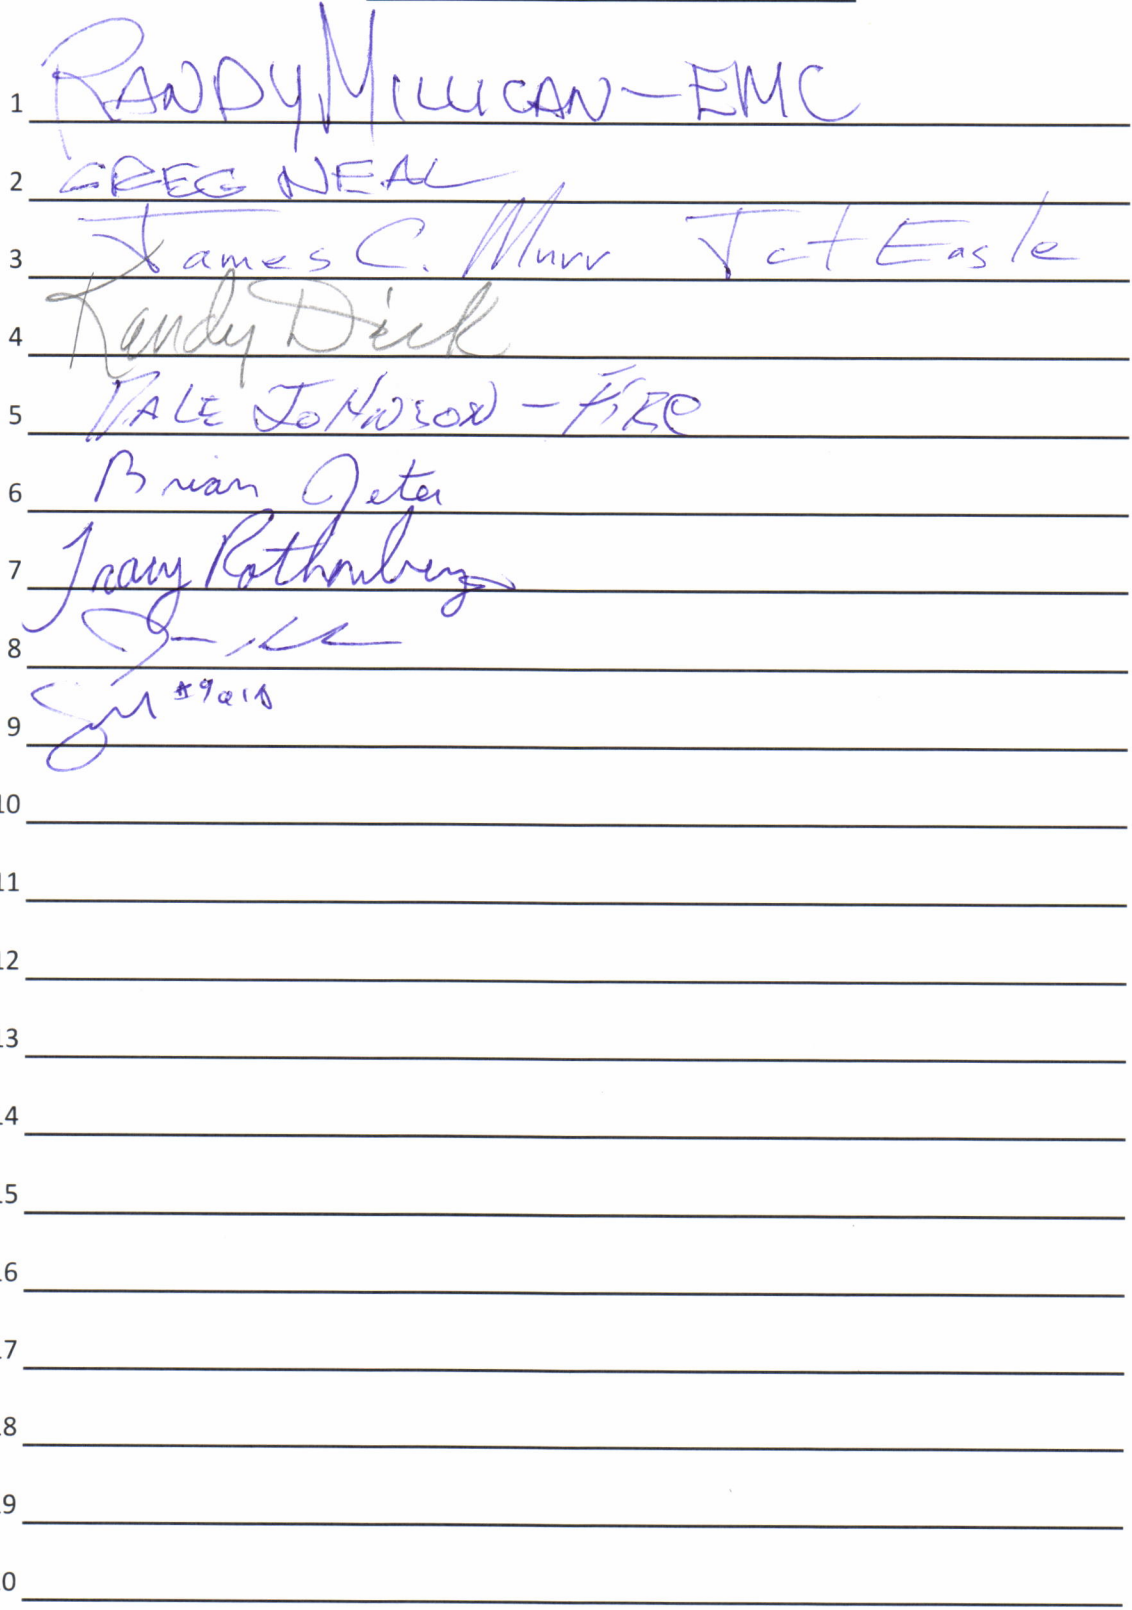 1 RANDY MILLICAN - EMC
2 GREG NEAL
3 James C. Murr Jct Eagle
4 Randy Dick
5 DALE JOHNSON - FIRE
6 Brian Jeter
7 Tracy Rothenberg
8
9
10
11
12
13
14
15
16
17
18
19
20